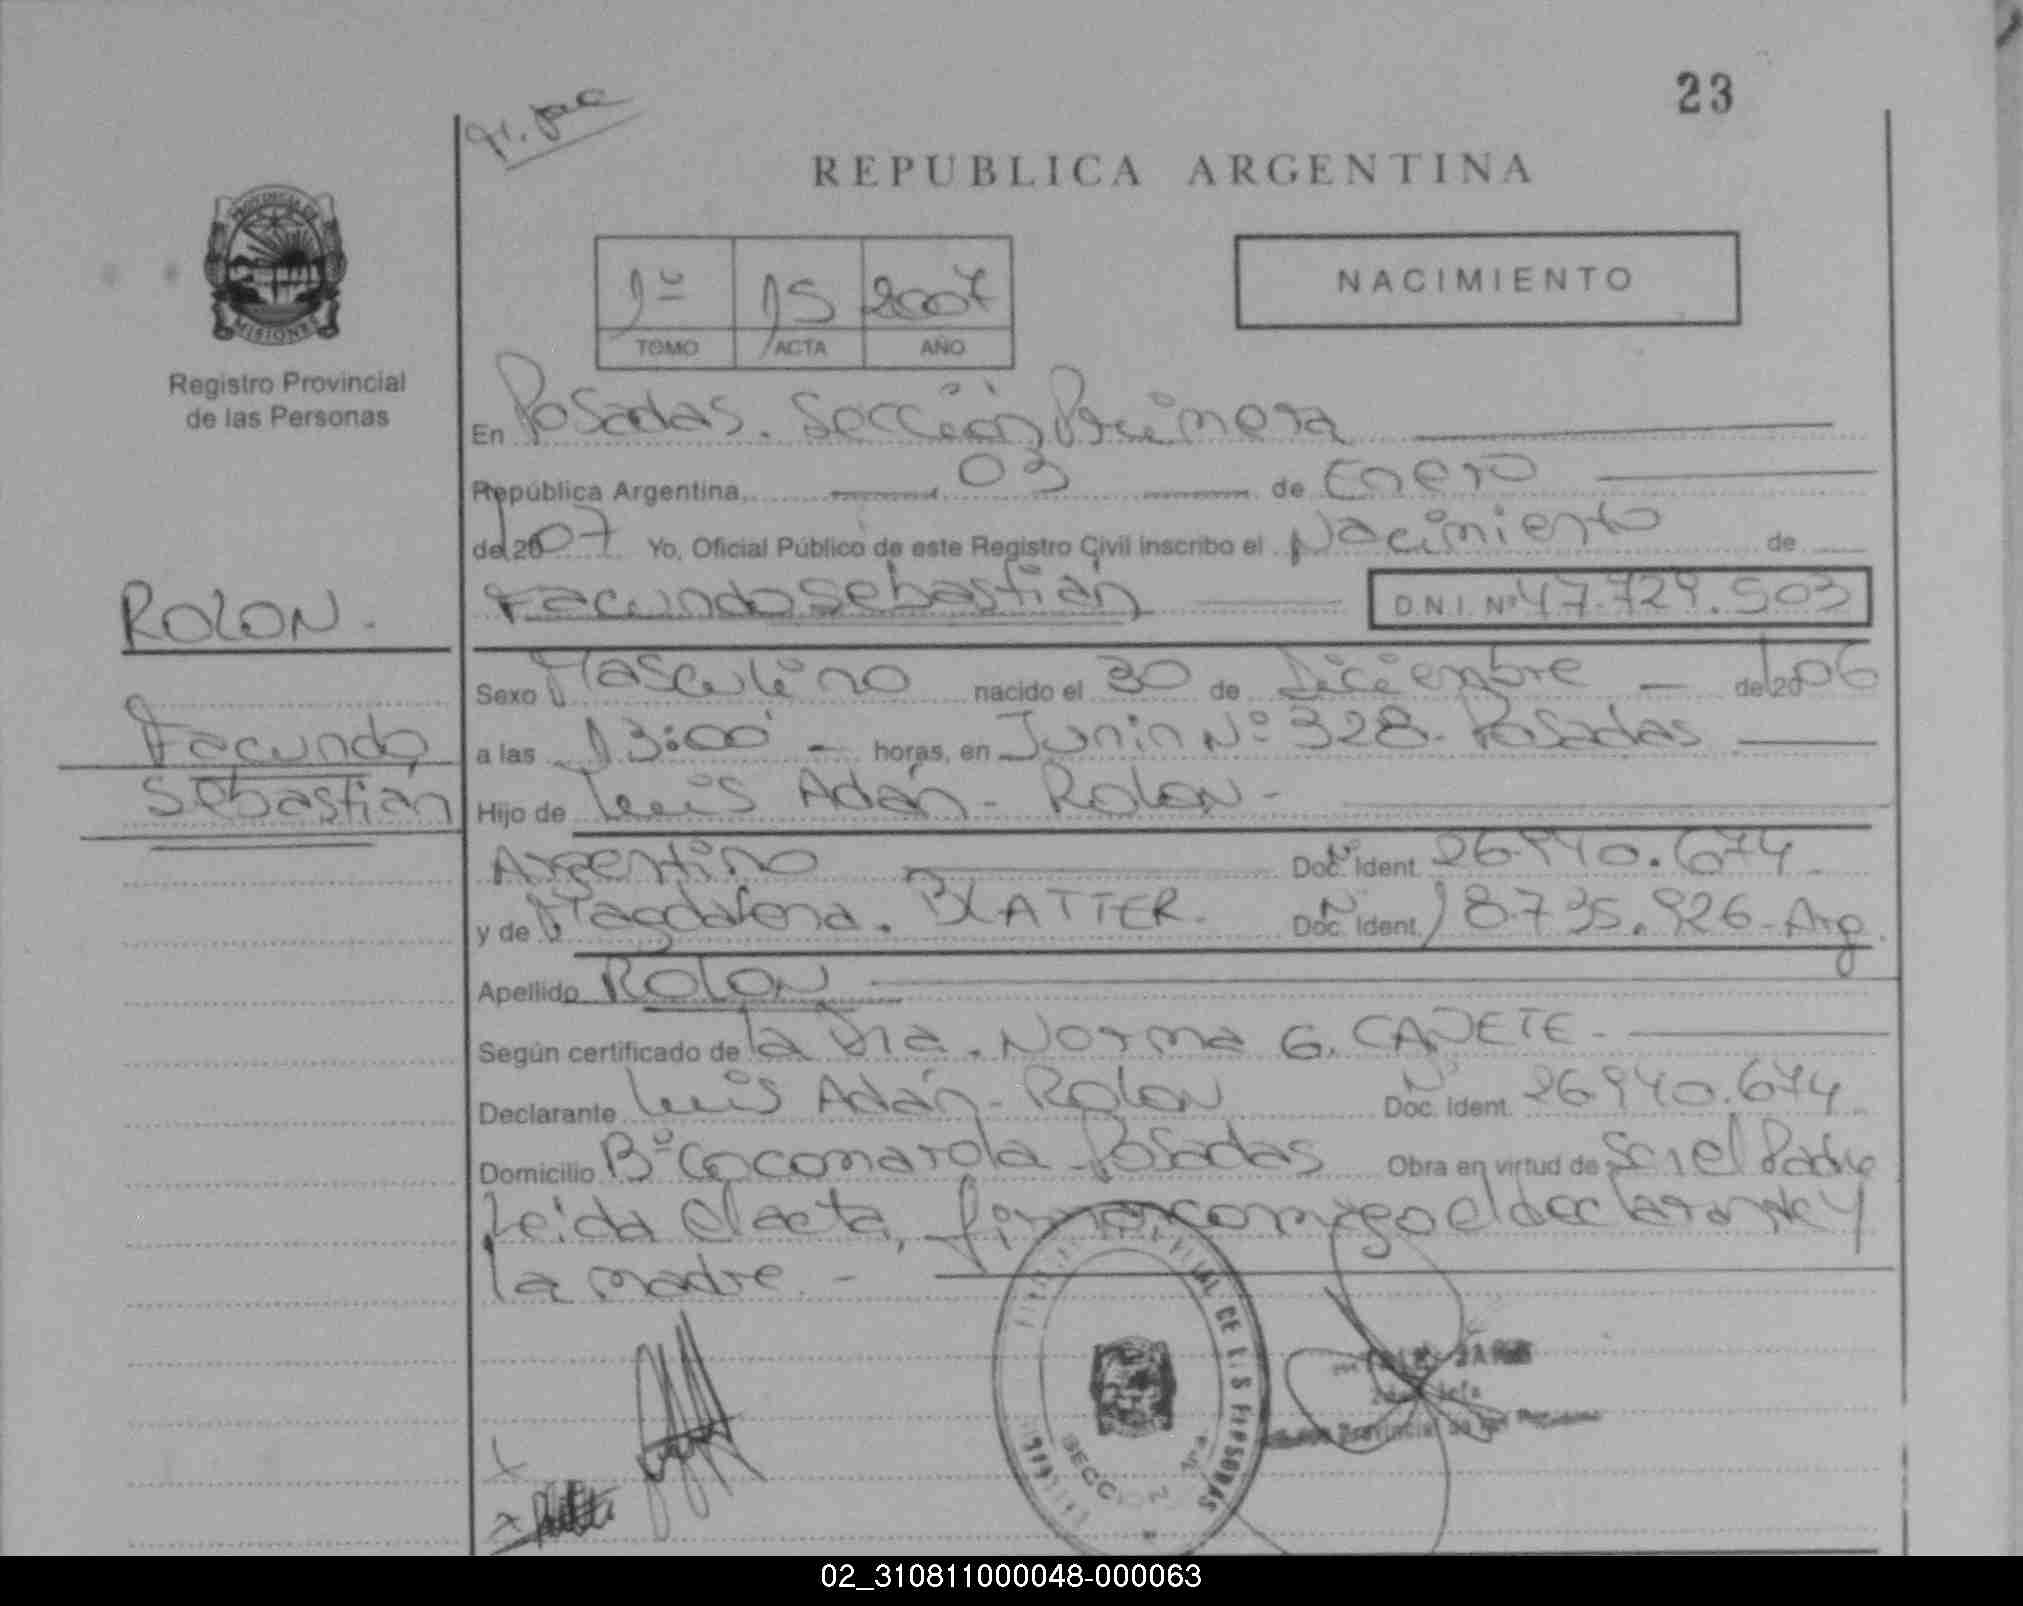 23
REPUBLICA ARGENTINA
PROVINCIA DE
MISIONES
Registro Provincial
de las Personas
1º 15 2007
TOMO ACTA AÑO
NACIMIENTO
En Posadas. Sección Primera
República Argentina, 03 de Enero
del 2007 Yo, Oficial Público de este Registro Civil inscribo el Nacimiento de
ROLON.
Facundo Sebastián D.N.I. Nº 47.729.503
Sexo Masculino nacido el 30 de Diciembre - del 2006
Facundo
a las 13:00 - horas, en Junin Nº 328. Posadas
Sebastián
Hijo de Luis Adán - Rolon -
Argentino Doc. Nº Ident. 26.940.674
y de Magdalena. BLATTER. Doc. N Ident. 18.735.926 - Arg.
Apellido ROLON
Según certificado de la Dra. Norma G. CAÑETE -
Declarante Luis Adán - Rolon Doc. Nº Ident. 26.940.674
Domicilio Bº Cocomarola Posadas Obra en virtud de Ser el Padre
Leida el acta, firma conmigo el declarante y
la madre. -
DE LAS PERSONAS
02_310811000048-000063